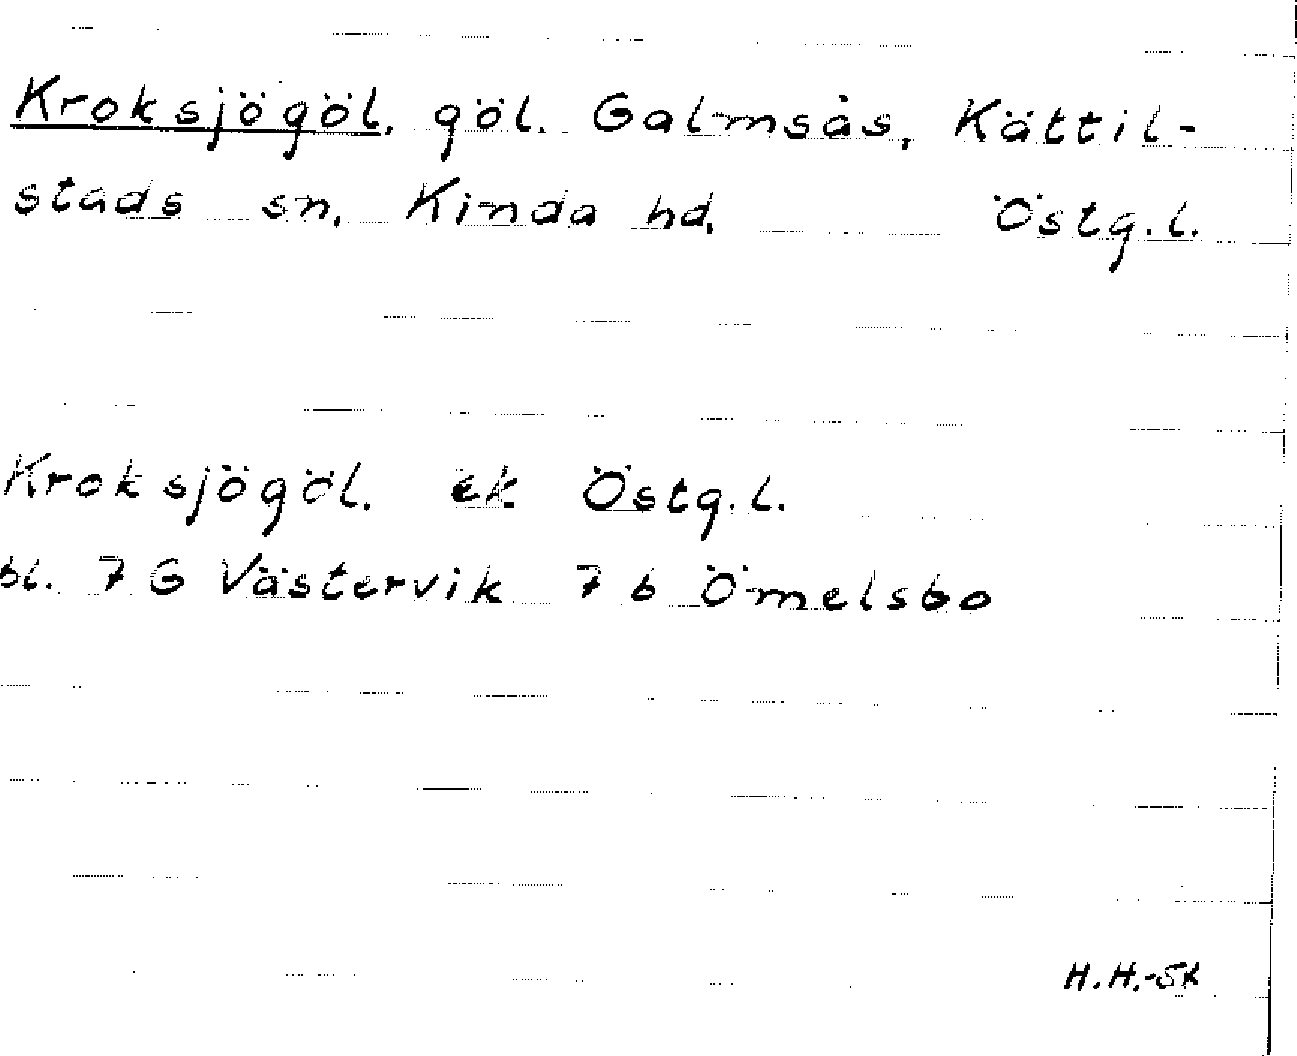 Kroksjögöl, göl. Galmsås, Kättil-
stads sn, Kinda hd, Östg.l.
Kroksjögöl. ek Östg.l.
bl. 7 G Västervik 7 b Ömelsbo
H.H.-Sk